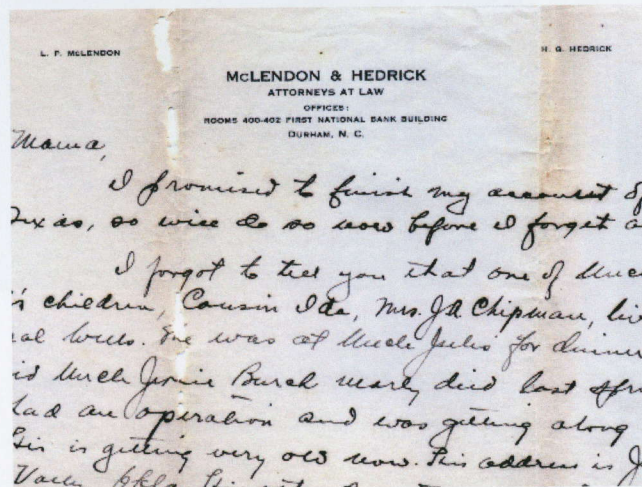 L. P. McLENDON
H. G. HEDRICK
McLENDON & HEDRICK
ATTORNEYS AT LAW
OFFICES:
ROOMS 400-402 FIRST NATIONAL BANK BUILDING
DURHAM, N. C.
Mama,
I promised to finish my account of
Texas, so will do so now before I forget a
I forgot to tell you that one of Unc
's children, Cousin Ida, Mrs. J A Chipman, liv
al Wells. She was at Uncle Julis for dinner
id Uncle Jimie Burch nearly died last spri
had an operation and was getting along
He is getting very old now. His address is J
Okla